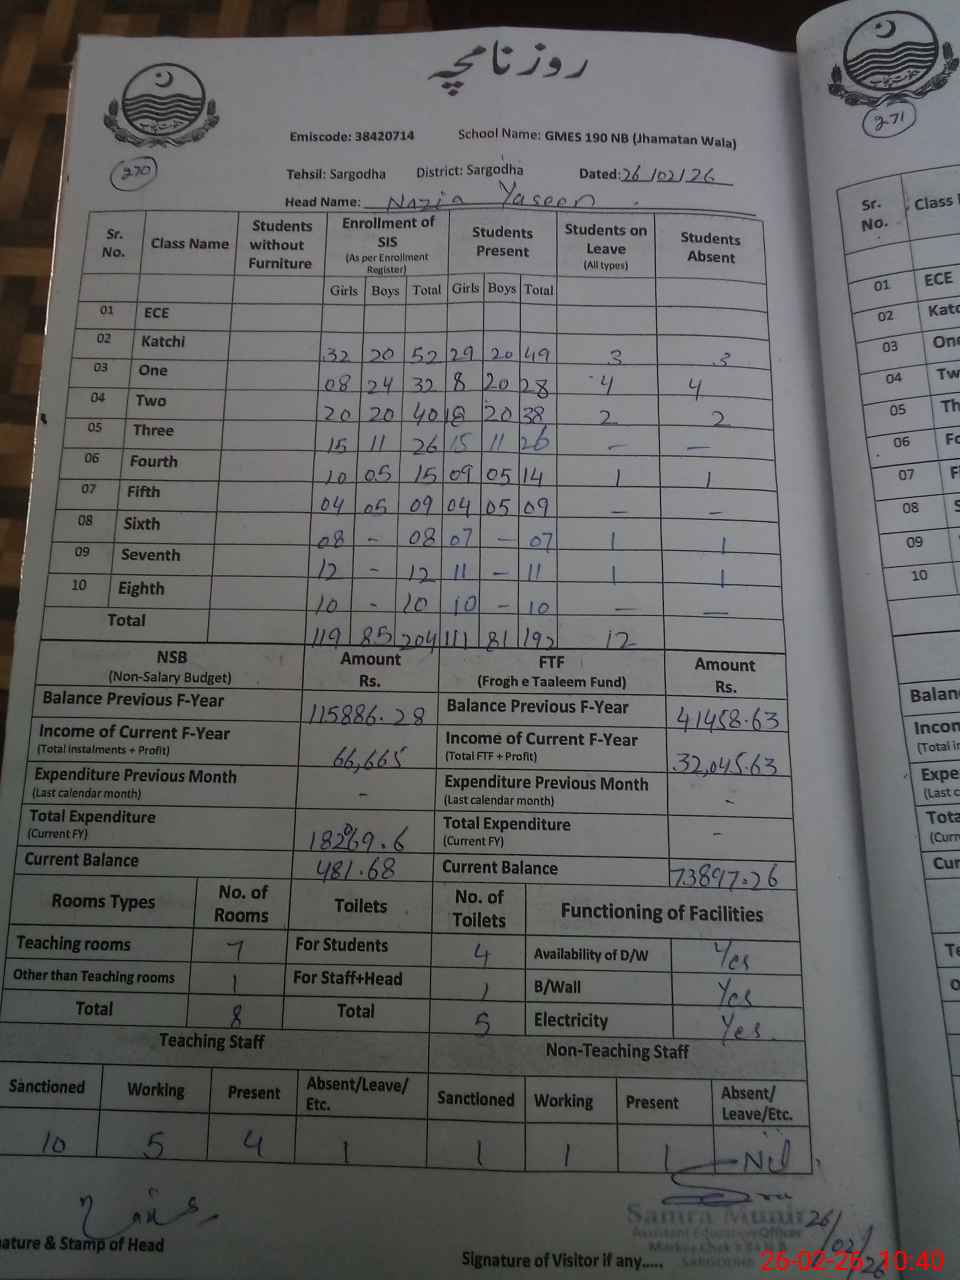 روزنامچہ
270
Emiscode: 38420714 School Name: GMES 190 NB (Jhamatan Wala)
Tehsil: Sargodha District: Sargodha Dated: 26/02/26
Head Name: Nazia Yaseen
Sr. No. Class Name Students without Furniture Enrollment of SIS (As per Enrollment Register) Students Present Students on Leave (All types) Students Absent
Girls Boys Total Girls Boys Total
01 ECE
02 Katchi 32 20 52 29 20 49 3 3
03 One 08 24 32 8 20 28 4 4
04 Two 20 20 40 18 20 38 2 2
05 Three 15 11 26 15 11 26 — —
06 Fourth 10 05 15 09 05 14 1 1
07 Fifth 04 05 09 04 05 09 — —
08 Sixth 08 - 08 07 - 07 1 1
09 Seventh 12 - 12 11 - 11 1 1
10 Eighth 10 - 10 10 - 10 — —
Total 119 85 204 111 81 192 12
NSB (Non-Salary Budget) Amount Rs. FTF (Frogh e Taaleem Fund) Amount Rs.
Balance Previous F-Year 115886.28 Balance Previous F-Year 41458.63
Income of Current F-Year (Total Instalments + Profit) 66,665 Income of Current F-Year (Total FTF + Profit) 32,045.63
Expenditure Previous Month (Last calendar month) - Expenditure Previous Month (Last calendar month) -
Total Expenditure (Current FY) Total Expenditure (Current FY) -
Current Balance 481.68 Current Balance 73897.26
Rooms Types No. of Rooms Toilets No. of Toilets Functioning of Facilities
Teaching rooms 7 For Students 4 Availability of D/W Yes
Other than Teaching rooms 1 For Staff+Head 1 B/Wall Yes
Total 8 Total 5 Electricity Yes
Teaching Staff Non-Teaching Staff
Sanctioned Working Present Absent/Leave/Etc. Sanctioned Working Present Absent/Leave/Etc.
10 5 4 1 1 1 1 Nil
Samra Munir
Assistant Education Officer
SARGODHA
26/02/26
ature & Stamp of Head
Signature of Visitor if any.....
26-02-26 10:40
271
Sr. No. Class
01 ECE
02 Katc
03 One
04 Tw
05 Th
06 Fo
07 F
08 S
09
10
Balan
Incon
(Total in
Expe
(Last c
Tota
(Curr
Cur
Te
O